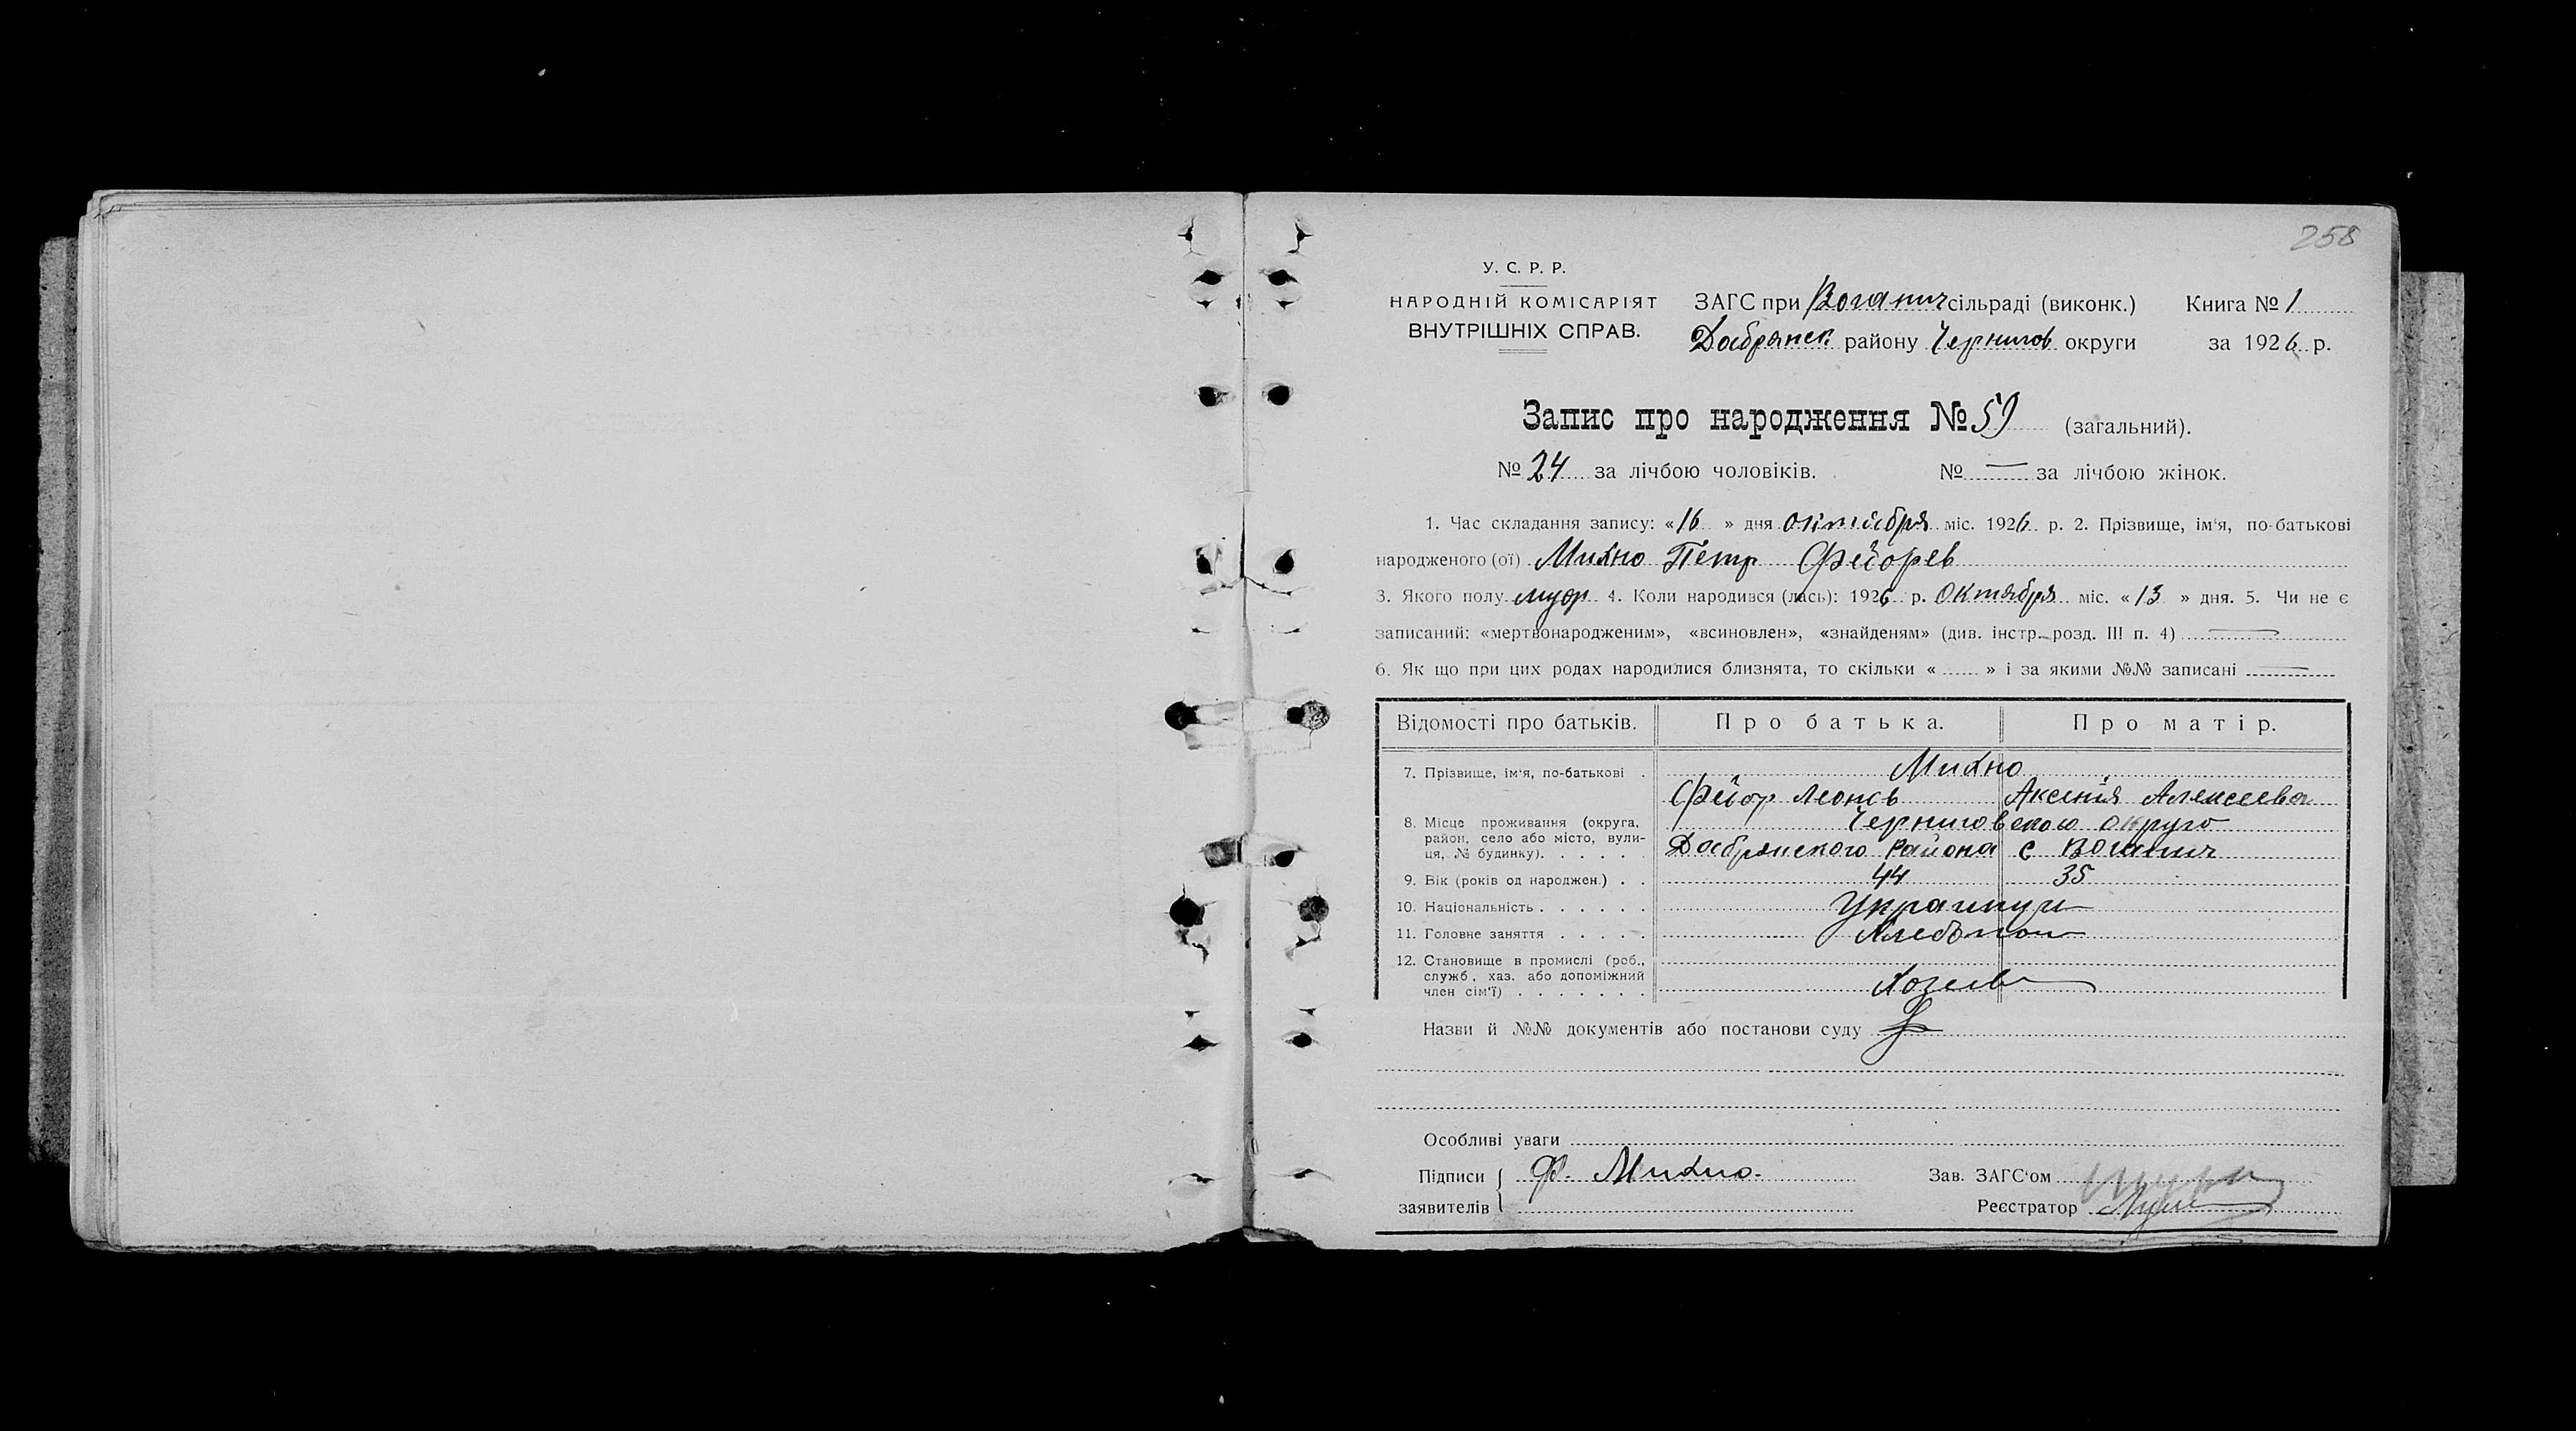 258
У. С. Р. Р.
НАРОДНІЙ КОМІСАРІЯТ
ВНУТРІШНІХ СПРАВ.
ЗАГС при Воганич сільраді (виконк.) Книга № 1
Добрянск району Чернигов округи за 1926 р.
Запис про народження № 59 (загальний).
№ 24 за лічбою чоловіків. № — за лічбою жінок.
1. Час складання запису: «16» дня октября міс. 1926 р. 2. Прізвище, ім'я, по-батькові
народженого (ої) Михно Петр Федорев
3. Якого полу 4. Коли народився (лась): 1926 р. Октября міс. «13» дня. 5. Чи не є
записаний: «мертвонародженим», «всиновлен», «знайденям» (див. інстр. розд. III п. 4) —
6. Як що при цих родах народилися близнята, то скільки «......» і за якими №№ записані —
Відомості про батьків. Про батька. Про матір.
7. Прізвище, ім'я, по-батькові . Михно
Федор Леонов Аксения Алексеева
8. Місце проживання (округа, район, село або місто, вулиця, № будинку). . . . . . Черниговского округо
Добрянского района с Воганич
9. Вік (років од народжен.) . . 44 35
10. Національність . . . . . .
11. Головне заняття . . . . . Хлебпаш
12. Становище в промислі (роб., служб, хаз. або допоміжний член сім'ї) . . . . . . . Хозяев
Назви й №№ документів або постанови суду
Особливі уваги
Підписи заявителів { Ф. Михно. Зав. ЗАГС'ом
Реєстратор